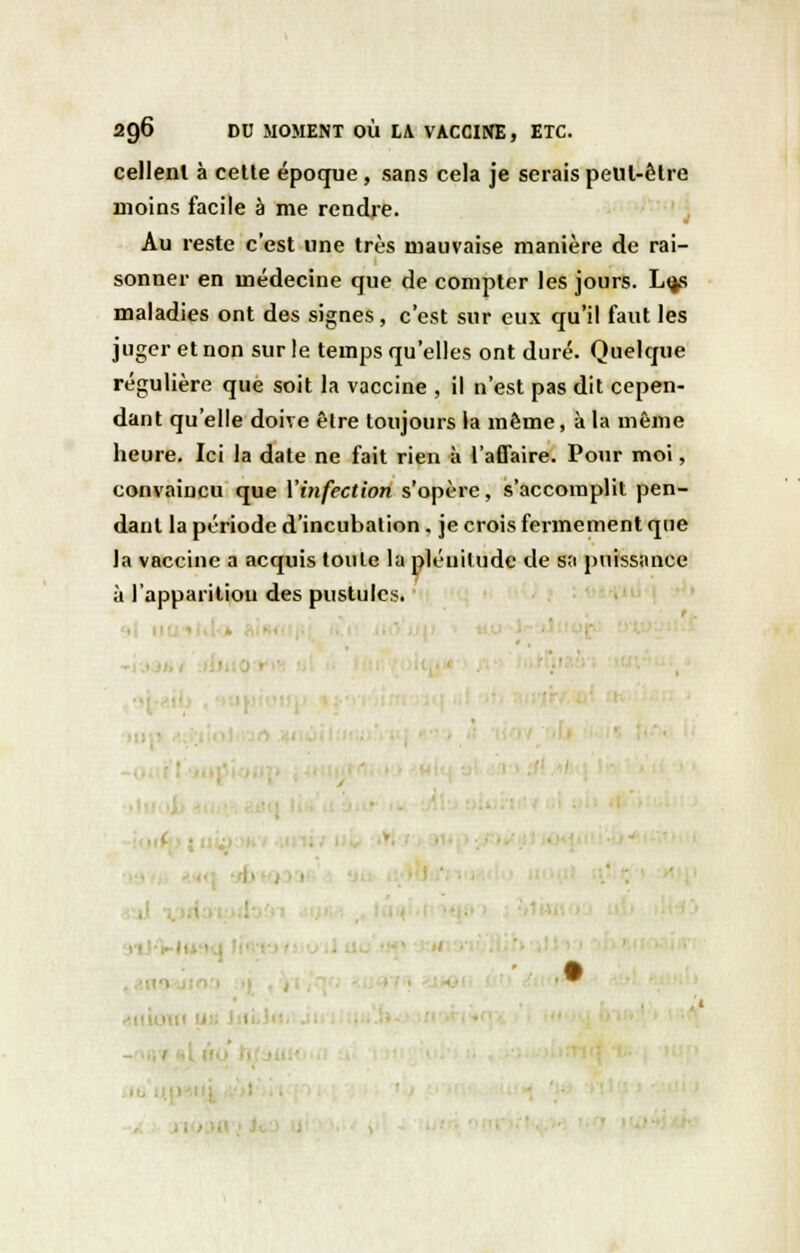 296 DU MOMENT OÙ LA VACCINE, ETC.
cellent à cette époque, sans cela je serais peut-être
moins facile à me rendre.
Au reste c'est une très mauvaise manière de rai-
sonner en médecine que de compter les jours. Les
maladies ont des signes, c'est sur eux qu'il faut les
juger et non sur le temps qu'elles ont duré. Quelque
régulière que soit la vaccine , il n'est pas dit cepen-
dant qu'elle doive être toujours la même, à la même
heure. Ici la date ne fait rien à l'affaire. Pour moi,
convaincu que l'infection s'opère, s'accomplit pen-
dant la période d'incubation, je crois fermement que
la vaccine a acquis toute la plénitude de sa puissance
à l'apparition des pustules.